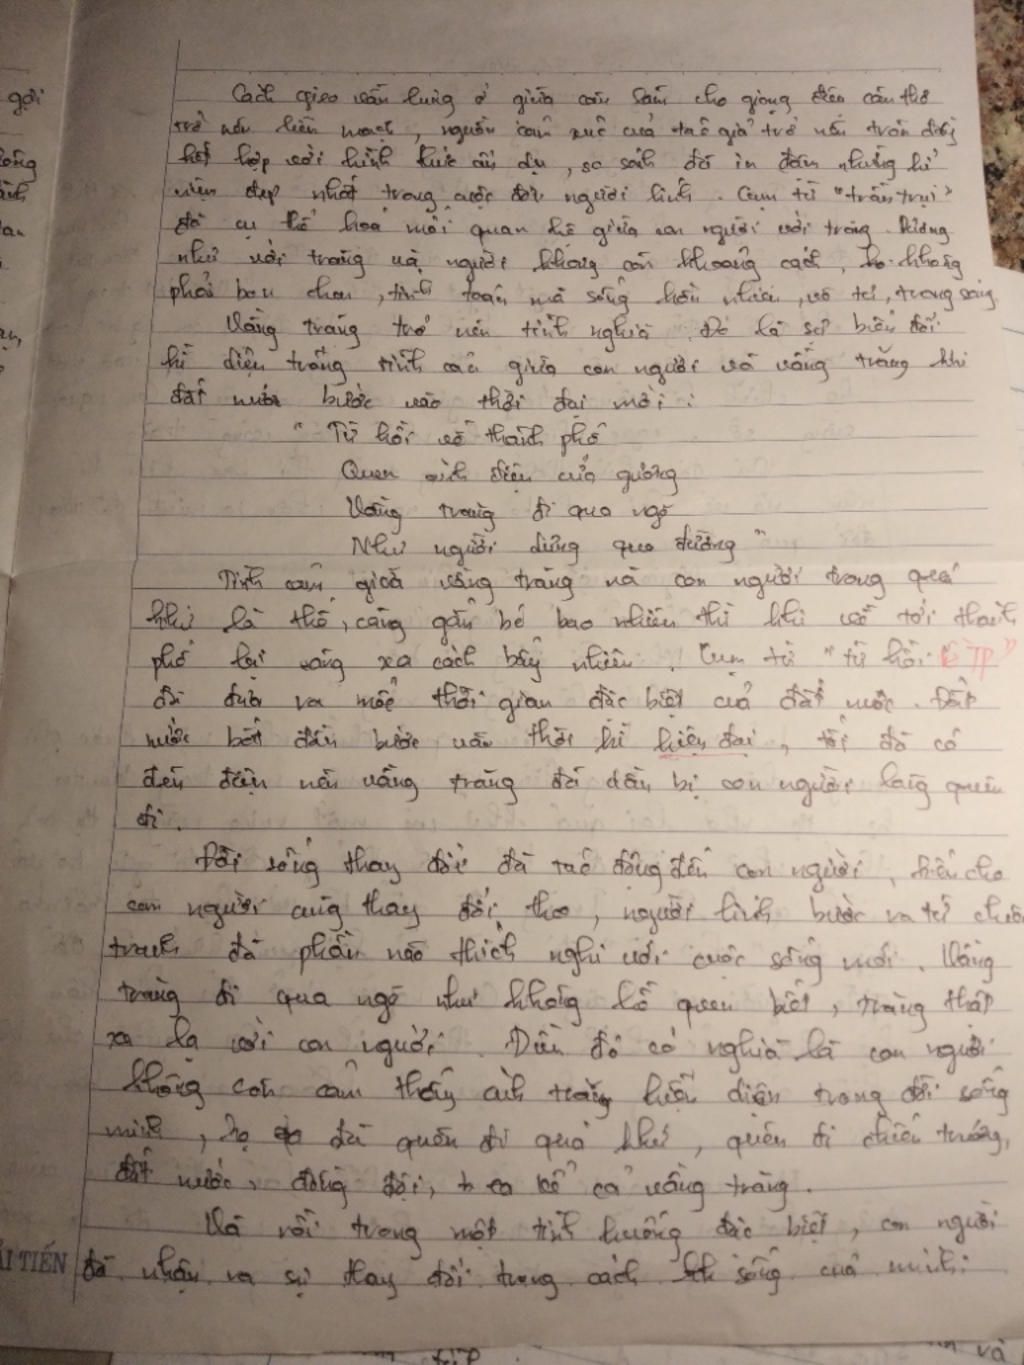 gợi
Cách gieo vần lưng ở giữa câu làm cho giọng điệu câu thơ
trở nên liền mạch, nguồn cảm xúc của tác giả trở nên tràn đầy
kết hợp với hình thức ẩn dụ, so sánh đã in đậm những kỉ
niệm đẹp nhất trong cuộc đời người lính. Cụm từ "trần trụi"
đã cụ thể hoá mối quan hệ giữa con người với trăng. Dường
như với trăng và người không còn khoảng cách, họ không
phải bon chen, tính toán mà sống hồn nhiên, vô tư, trong sáng.
Vầng trăng trở nên tình nghĩa. Đó là sự biến đổi
kì diệu trong tình cảm giữa con người và vầng trăng khi
đất nước bước vào thời đại mới:
"Từ hồi về thành phố
Quen ánh điện cửa gương
Vầng trăng đi qua ngõ
Như người dưng qua đường"
Tình cảm giữa vầng trăng và con người trong quá
khứ là thế, càng gắn bó bao nhiêu thì khi về tới thành
phố lại càng xa cách bấy nhiêu. Cụm từ "từ hồi về TP"
đã đưa ra mốc thời gian đặc biệt của đất nước. Đất
nước bắt đầu bước vào thời kì hiện đại, tối đã có
đèn điện nên vầng trăng đã dần bị con người lãng quên
đi.
Đời sống thay đổi đã tác động đến con người, khiến cho
con người cũng thay đổi theo, người lính bước ra từ chiến
tranh đã phần nào thích nghi với cuộc sống mới. Vầng
trăng đi qua ngõ như không hề quen biết, trăng thật
xa lạ với con người. Điều đó có nghĩa là con người
không còn cảm thấy ánh trăng hiện diện trong đời sống
mình, họ đã quên đi quá khứ, quên đi chiến trường,
đất nước, đồng đội, kể cả vầng trăng.
Và rồi trong một tình huống đặc biệt, con người
đã nhận ra sự thay đổi trong cách sống của mình:
ẢI TIẾN
và